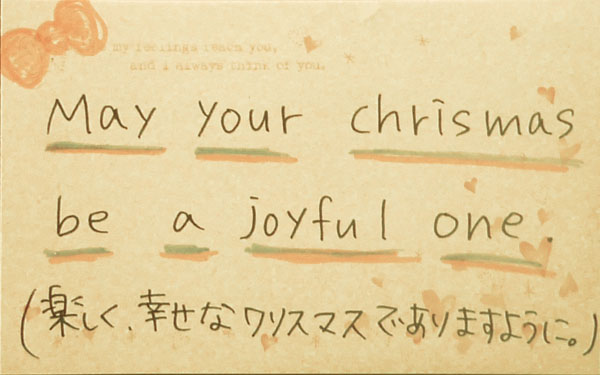 my feelings reach you,
and i always think of you.
May your chrismas
be a joyful one.
(楽しく、幸せなクリスマスでありますように。)